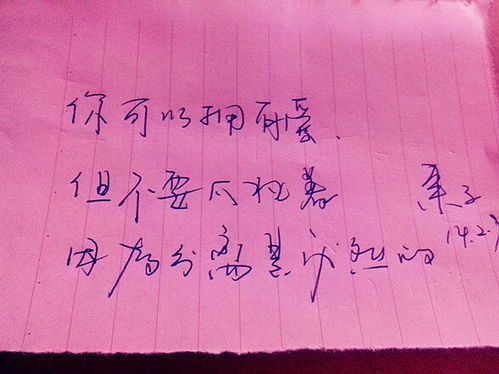 你可以拥有爱.
但不要太执着
因為分离是必然的
14.2.